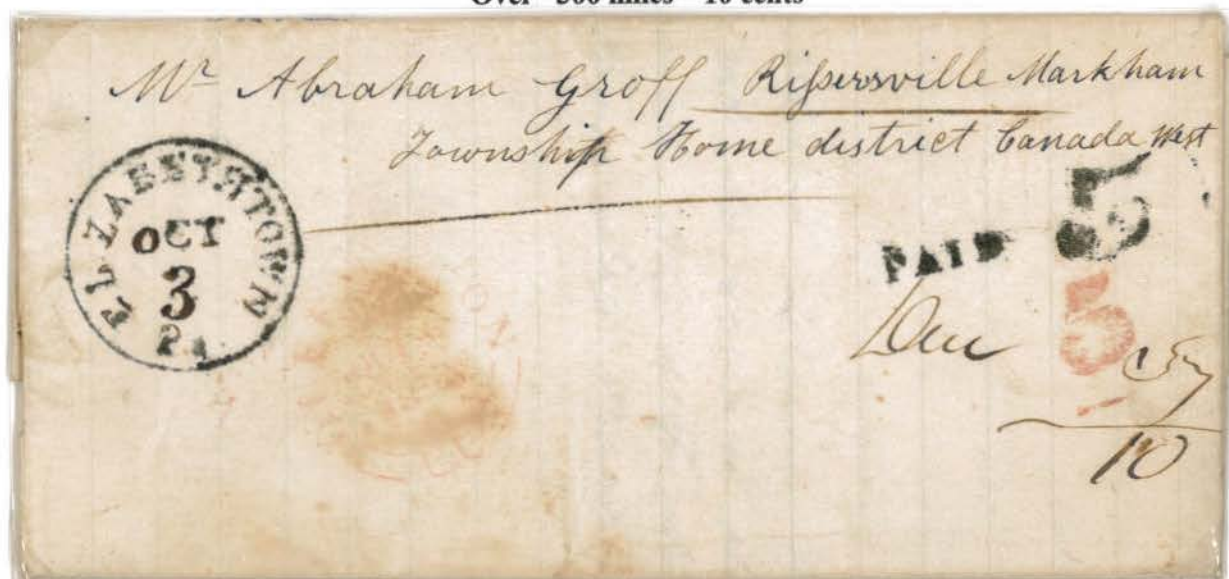 Over 300 miles - 10 cents
Mr Abraham Groff Risserville Markham
Township Home district Canada West
ELIZABETHTOWN
OCT
3
Pa
PAID 5
Due 5
10